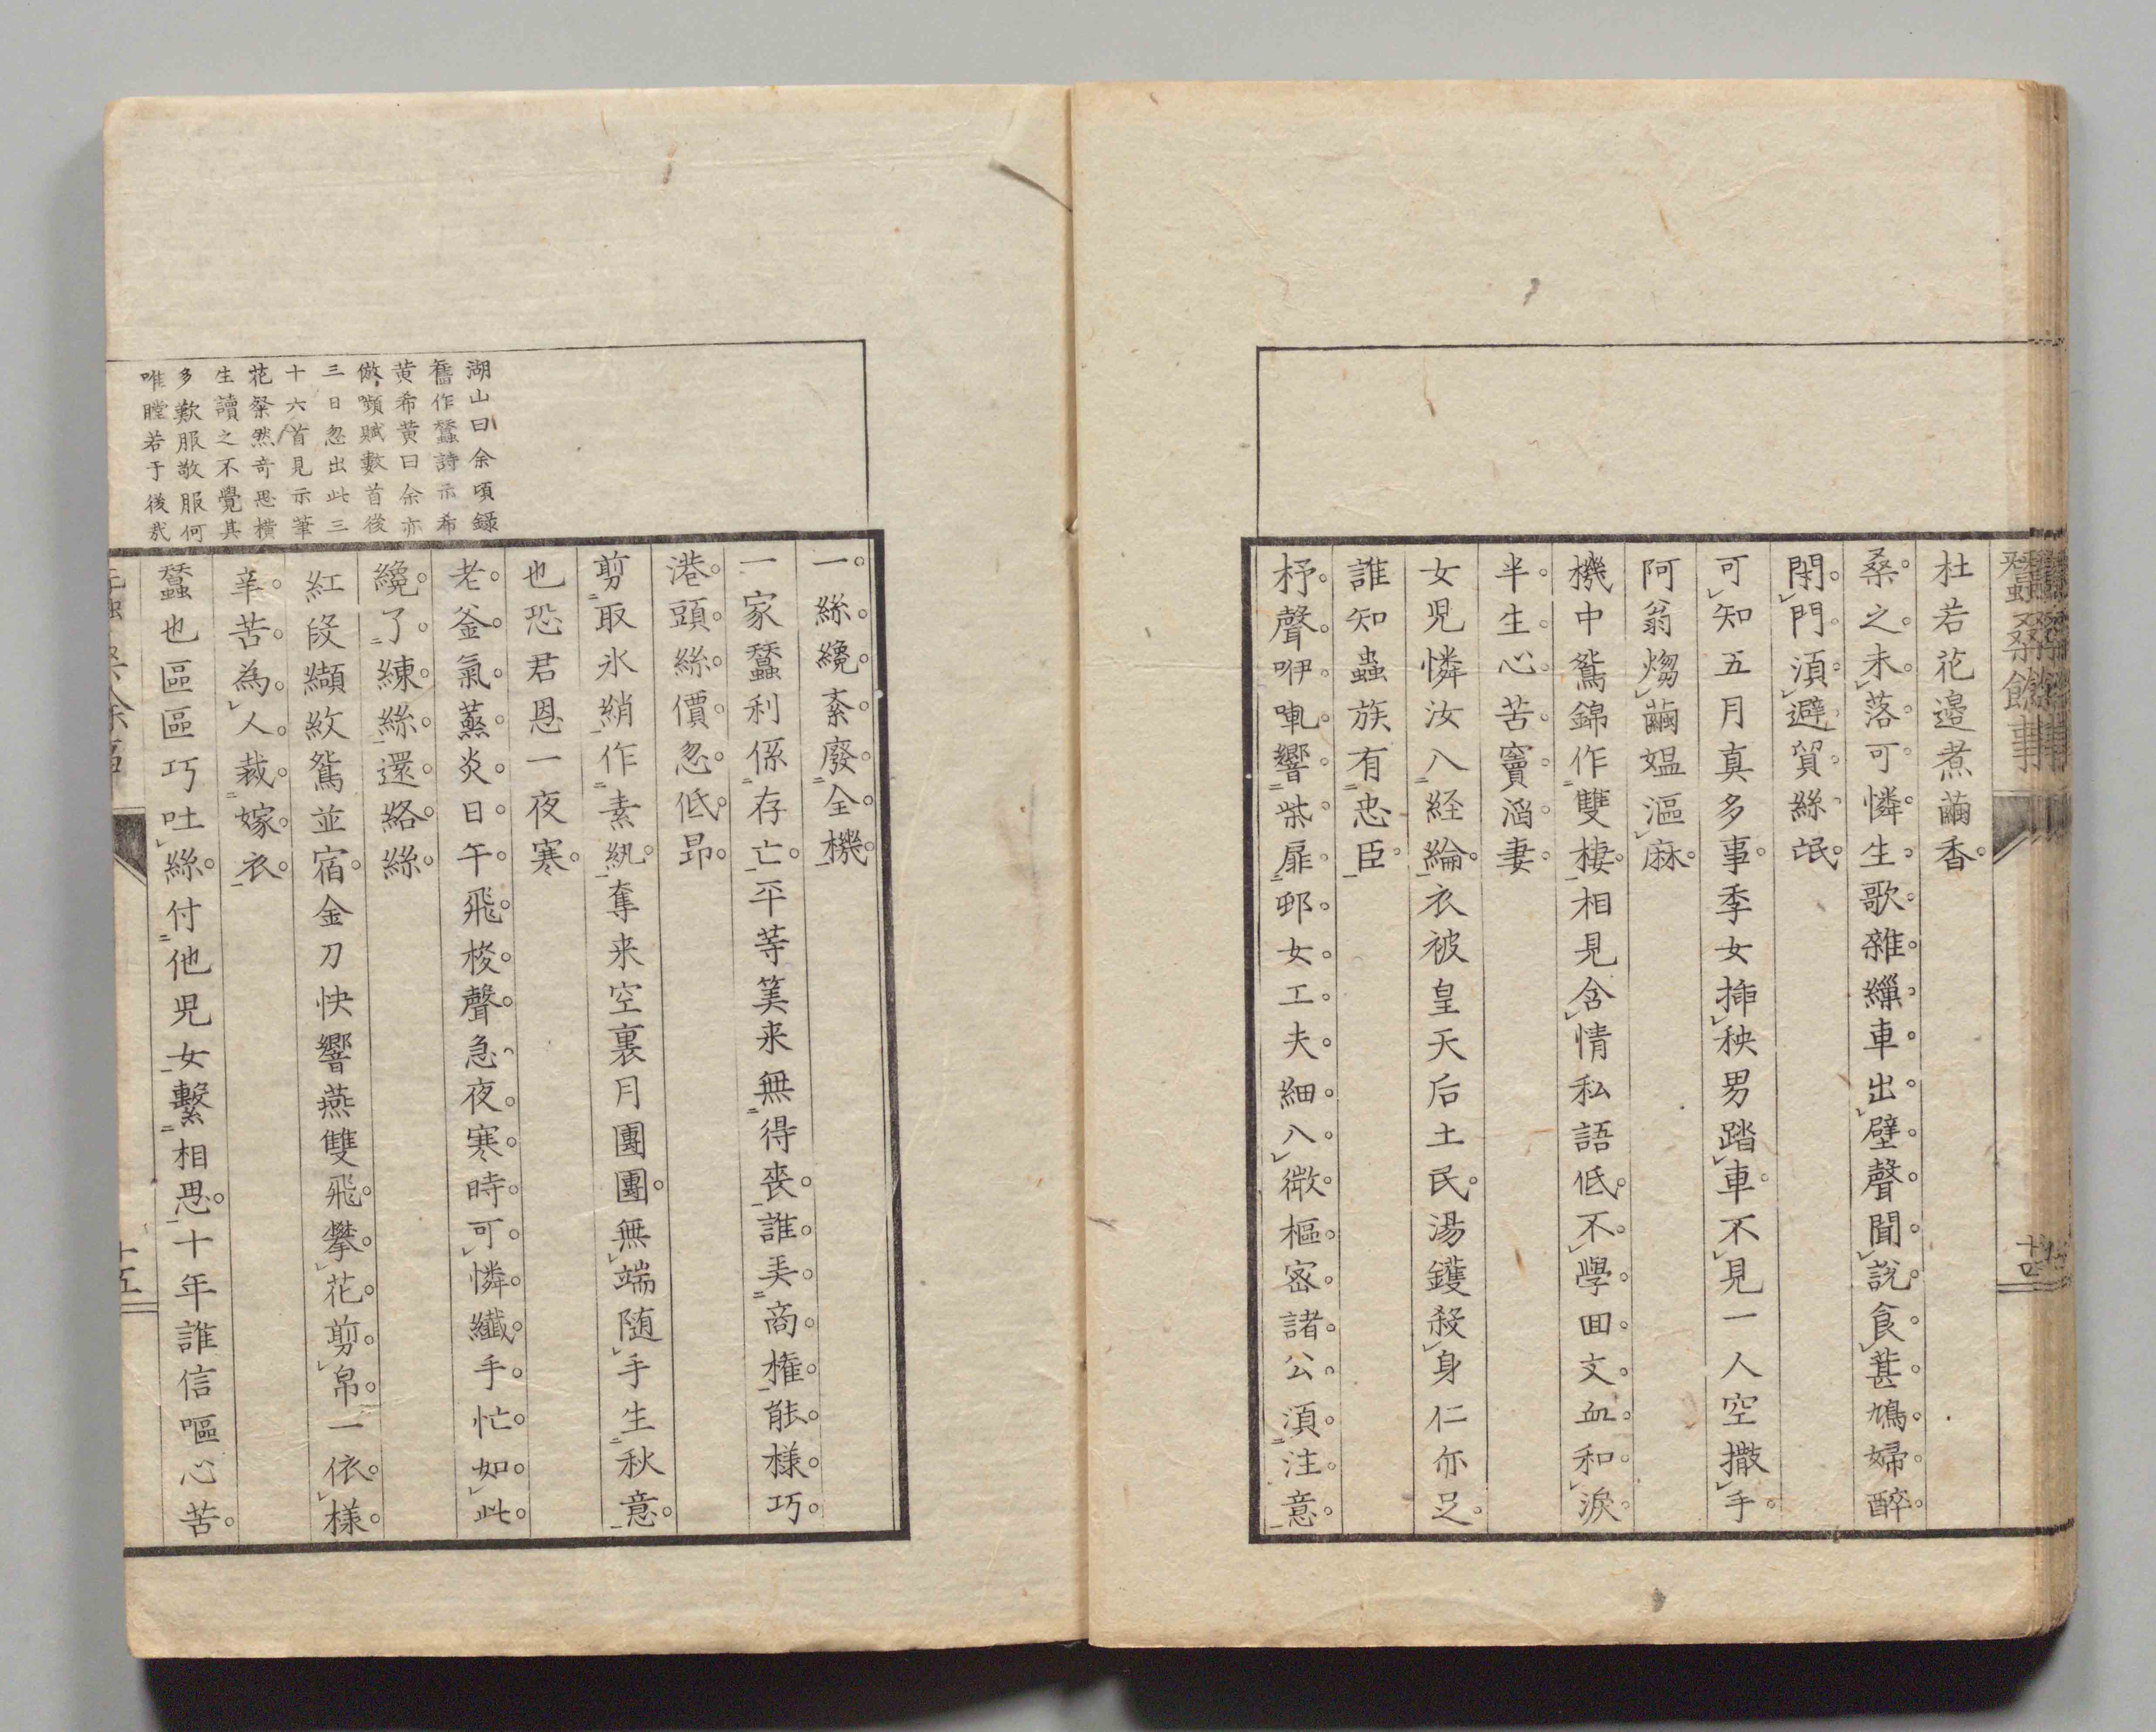 蠶桑餘事
十四
杜若花邉煮繭香
桑之未落可憐生歌雜繅車出壁聲聞說食葚鳩婦醉
閑門湏避貿絲氓
可知五月真多事季女挿秧男踏車不見一人空撒手
阿翁煼繭媪漚麻
機中鴛錦作雙棲相見含情私語低不學回文血和淚
半生心苦竇滔妻
女児憐汝八経綸衣被皇天后土民湯鑊殺身仁亦足
誰知蟲族有忠臣
杼聲咿軋響柴扉邨女工夫細入微樞密諸公湏注意
一絲纔紊廢全機
一家蠶利係存亡平等筭来無得喪誰弄商權能様巧
港頭絲價忽低昻
剪取氷綃作素紈奪来空裏月團團無端随手生秋意
也恐君恩一夜寒
老釜氣蒸炎日午飛梭聲急夜寒時可憐纎手忙如此
纔了練絲還絡絲
紅段纈紋鴛並宿金刀快響燕雙飛攀花剪帛一依様
辛苦為人裁嫁衣
蠶也區區巧吐絲付他児女繫相思十年誰信嘔心苦
湖山曰余頃録
舊作蠶詩示希
黄希黄曰余亦
倣嚬賦數首後
三日忽出此三
十六首見示筆
花粲然奇思横
生讀之不覺其
多歎服敬服何
唯瞠若于後哉
十五